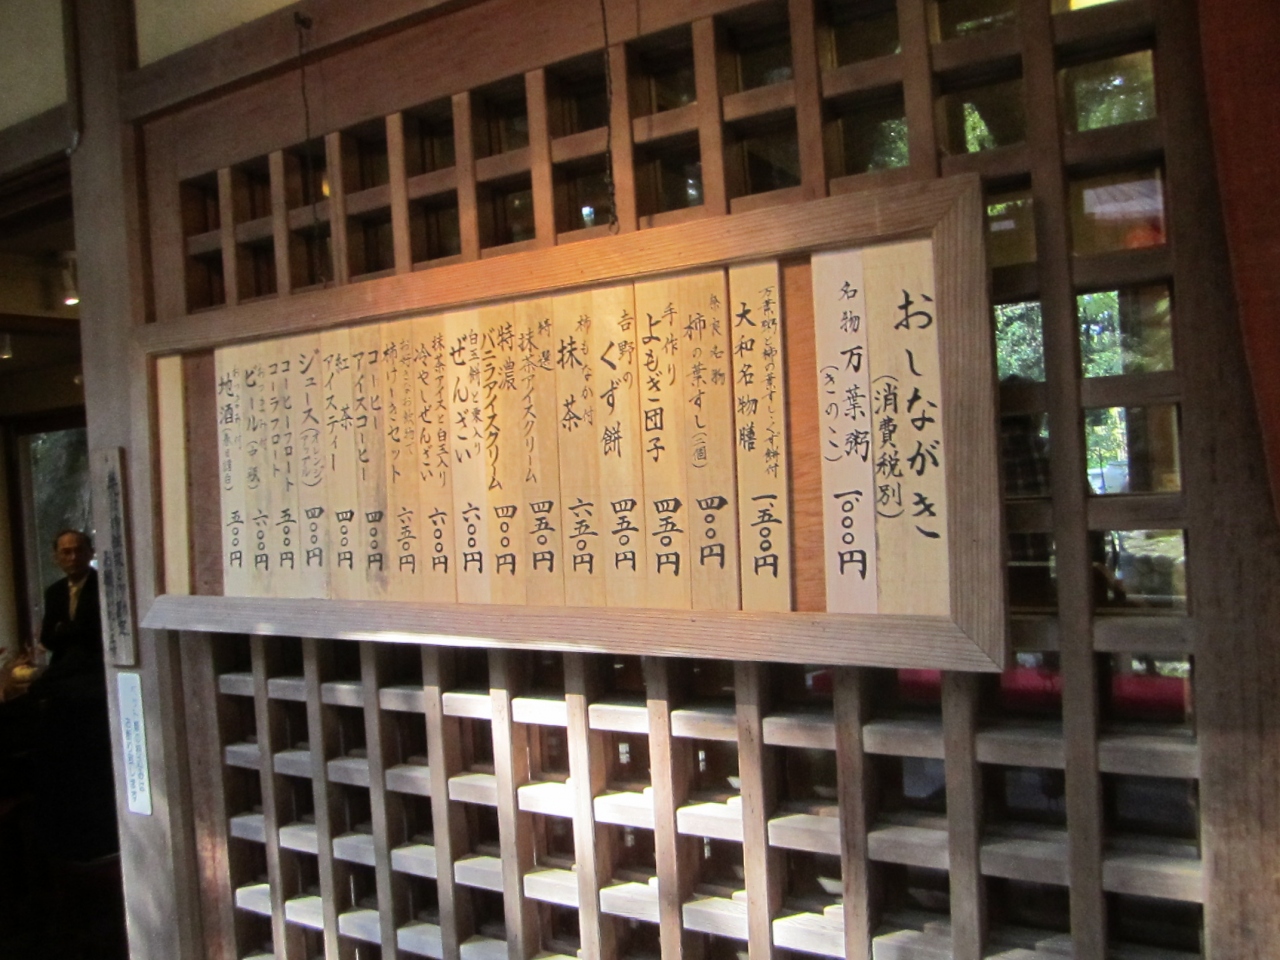 おしながき
(消費税別)
名物 万葉粥 一、〇〇〇円
(きのこ)
万葉粥と柿の葉すし・くず餅付
大和名物膳 一、五〇〇円
奈良名物
柿の葉すし(二個) 四〇〇円
手作り
よもぎ団子 四五〇円
吉野の
くず餅 四五〇円
柿もなか付
抹茶 六五〇円
特選
抹茶アイスクリーム 四五〇円
特濃
バニラアイスクリーム 四〇〇円
白玉餅と栗入り
ぜんざい 六〇〇円
抹茶アイスと白玉入り
冷やしぜんざい 六〇〇円
柿けーきセット 六五〇円
コーヒー
アイスコーヒー 四〇〇円
紅茶
アイスティー 四〇〇円
ジュース(オレンジ アップル) 四〇〇円
コーヒーフロート
コーラフロート 五〇〇円
おつまみ付
ビール(中瓶) 六〇〇円
おつまみ付
地酒 五〇〇円